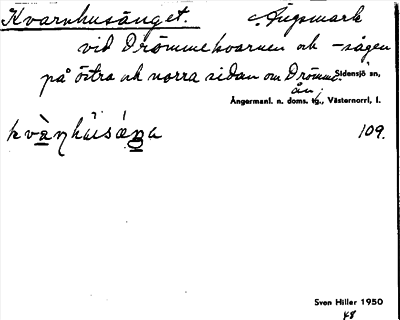 Kvarnhusänget. Ängsmark
vid Drömmekvarnen och -sågen
på östra och norra sidan om Drömme-
ån. Sidensjö sn,
Ångermanl. n. doms. tg., Västernorrl. l.
109.
Sven Hiller 1950
48